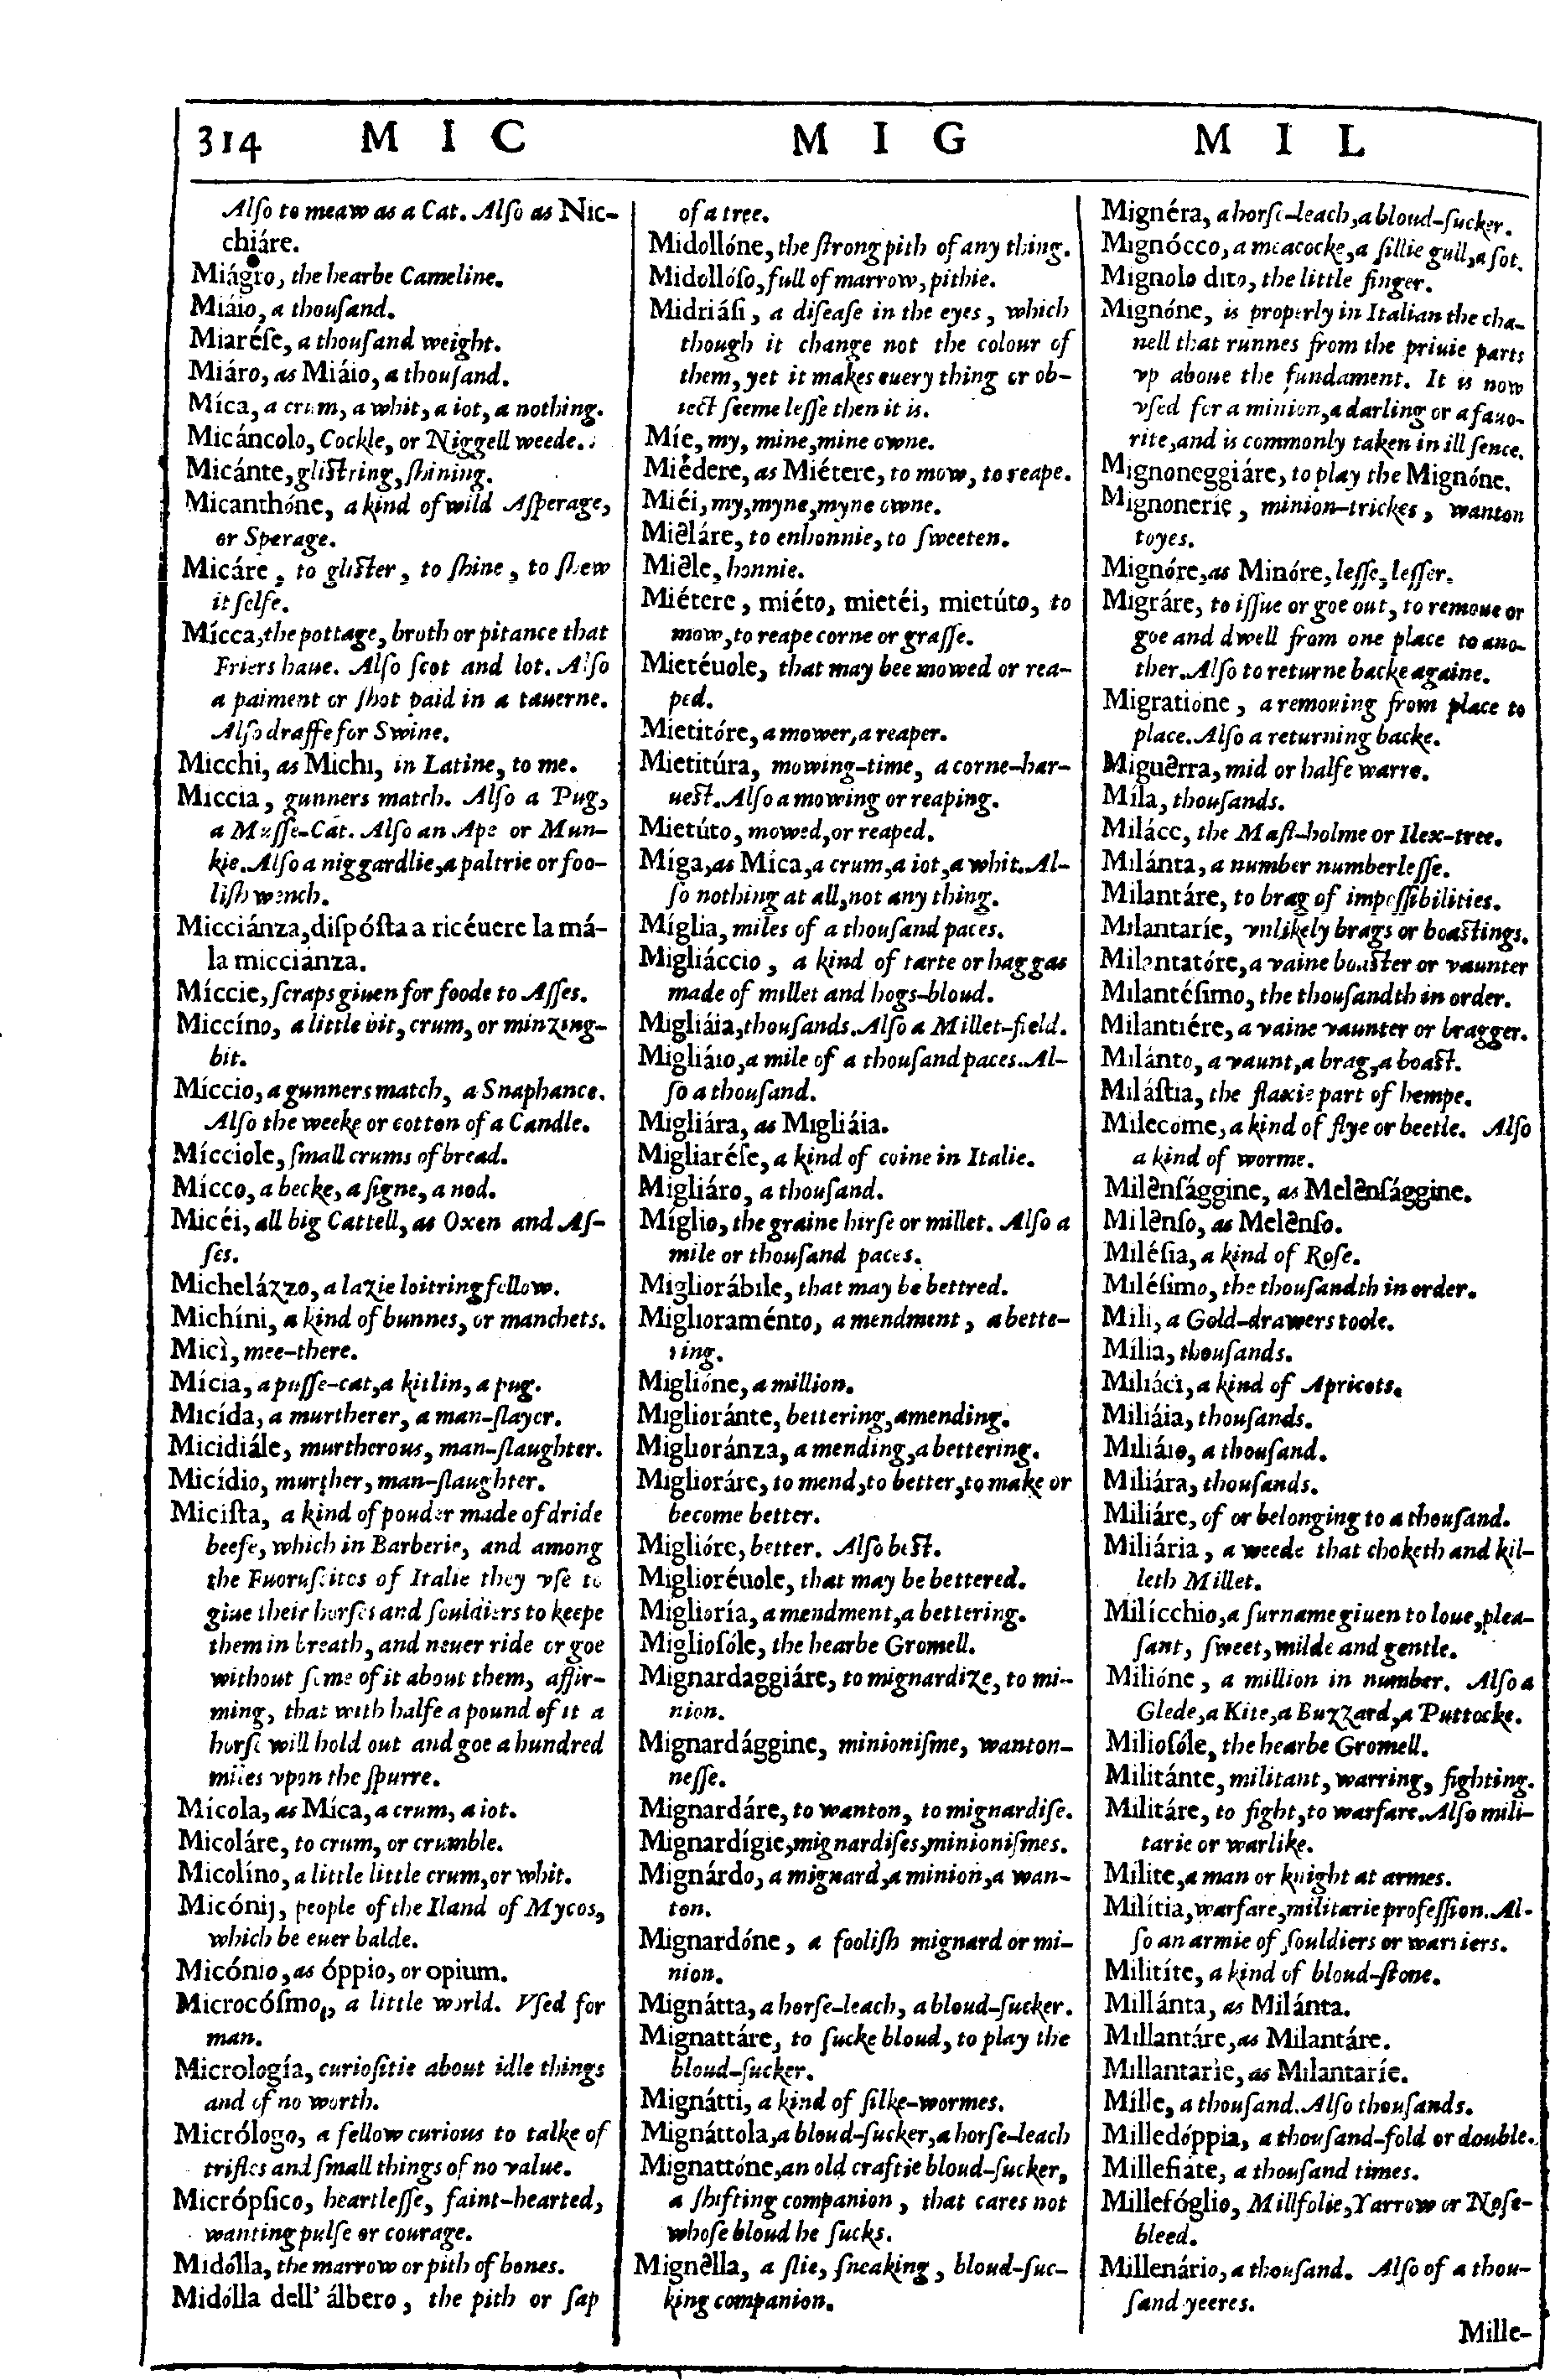 314 MIC MIG MIL
Alſo to meaw as a Cat. Alſo as Nic-
chiáre.
Miágro, the hearbe Cameline.
Miáio, a thouſand.
Miaréſe, a thouſand weight.
Miáro, as Miáio, a thouſand.
Míca, a crum, a whit, a iot, a nothing.
Micáncolo, Cockle, or Niggell weede.
Micánte, gliſtring, ſhining.
Micanthóne, a kind of wild Aſperage,
or Sperage.
Micáre, to gliſter, to ſhine, to ſhew
it ſelfe.
Mícca, the pottage, broth or pitance that
Friers haue. Alſo ſcot and lot. Alſo
a paiment or ſhot paid in a tauerne.
Alſo draffe for Swine.
Micchi, as Michi, in Latine, to me.
Míccia, gunners match. Alſo a Pug,
a Muſſe-Cat. Alſo an Ape or Mun-
kie. Alſo a niggardlie, a paltrie or foo-
liſh wench.
Micciánza, diſpóſta a ricéuere la má-
la micciánza.
Míccie, ſcraps giuen for foode to Aſſes.
Miccíno, a little bit, crum, or minzing-
bit.
Míccio, a gunners match, a Snaphance.
Alſo the weeke or cotton of a Candle.
Mícciole, ſmall crums of bread.
Mícco, a becke, a ſigne, a nod.
Micéi, all big Cattell, as Oxen and Aſ-
ſes.
Michelázzo, a lazie loitring fellow.
Michíni, a kind of bunnes, or manchets.
Micì, mee-there.
Mícia, a puſſe-cat, a kitlin, a pug.
Micída, a murtherer, a man-ſlayer.
Micidiále, murtherous, man-ſlaughter.
Micídio, murther, man-ſlaughter.
Miciſta, a kind of pouder made of dride
beefe, which in Barberie, and among
the Fuoruſcites of Italie they vſe to
giue their horſes and ſouldiers to keepe
them in breath, and neuer ride or goe
without ſome of it about them, affir-
ming, that with halfe a pound of it a
horſe will hold out and goe a hundred
miles vpon the ſpurre.
Mícola, as Míca, a crum, a iot.
Micoláre, to crum, or crumble.
Micolíno, a little little crum, or whit.
Micónij, people of the Iland of Mycos,
which be euer balde.
Micónio, as óppio, or opium.
Microcóſmo, a little world. Vſed for
man.
Micrología, curioſitie about idle things
and of no worth.
Micrólogo, a fellow curious to talke of
trifles and ſmall things of no value.
Micrópſico, heartleſſe, faint-hearted,
wanting pulſe or courage.
Midólla, the marrow or pith of bones.
Midólla dell' álbero, the pith or ſap
of a tree.
Midollóne, the ſtrong pith of any thing.
Midollóſo, full of marrow, pithie.
Midriáſi, a diſeaſe in the eyes, which
though it change not the colour of
them, yet it makes euery thing or ob-
iect ſeeme leſſe then it is.
Míe, my, mine, mine owne.
Miédere, as Miétere, to mow, to reape.
Miéi, my, myne, myne owne.
Mieláre, to enhonnie, to ſweeten.
Miêle, honnie.
Miétere, miéto, mietéi, mietúto, to
mow, to reape corne or graſſe.
Mietéuole, that may bee mowed or rea-
ped.
Mietitóre, a mower, a reaper.
Mietitúra, mowing-time, a corne-har-
ueſt. Alſo a mowing or reaping.
Mietúto, mowed, or reaped.
Míga, as Míca, a crum, a iot, a whit. Al-
ſo nothing at all, not any thing.
Míglia, miles of a thouſand paces.
Migliáccio, a kind of tarte or haggas
made of millet and hogs-bloud.
Migliáia, thouſands. Alſo a Millet-field.
Migliáio, a mile of a thouſand paces. Al-
ſo a thouſand.
Migliára, as Migliáia.
Migliaréſe, a kind of coine in Italie.
Migliáro, a thouſand.
Míglio, the graine hirſe or millet. Alſo a
mile or thouſand paces.
Migliorábile, that may be bettred.
Miglioraménto, a mendment, a bette-
ring.
Miglióne, a million.
Miglioránte, bettering, amending.
Miglioránza, a mending, a bettering.
Miglioráre, to mend, to better, to make or
become better.
Miglióre, better. Alſo beſt.
Migliorέuole, that may be bettered.
Miglioría, a mendment, a bettering.
Miglioſóle, the hearbe Gromell.
Mignardaggiáre, to mignardize, to mi-
nion.
Mignardággine, minioniſme, wanton-
neſſe.
Mignardáre, to wanton, to mignardiſe.
Mignardígie, mignardiſes, minioniſmes.
Mignárdo, a mignard, a minion, a wan-
ton.
Mignardóne, a fooliſh mignard or mi-
nion.
Mignátta, a horſe-leach, a bloud-ſucker.
Mignattáre, to ſucke bloud, to play the
bloud-ſucker.
Mignátti, a kind of ſilke-wormes.
Mignáttola, a bloud-ſucker, a horſe-leach
Mignattóne, an old craftie bloud-ſucker,
a ſhifting companion, that cares not
whoſe bloud he ſucks.
Mignêlla, a ſlie, ſneaking, bloud-ſuc-
king companion.
Mignéra, a horſe-leach, a bloud-ſucker.
Mignócco, a meacocke, a ſillie gull, a ſot.
Mignolo dito, the little finger.
Mignóne, is properly in Italian the cha-
nell that runnes from the priuie parts
vp aboue the fundament. It is now
vſed for a minion, a darling or a fauo-
rite, and is commonly taken in ill ſence.
Mignoneggiáre, to play the Mignóne.
Mignonerie, minion-trickes, wanton
toyes.
Mignóre, as Minóre, leſſe, leſſer.
Migráre, to iſſue or goe out, to remoue or
goe and dwell from one place to ano-
ther. Alſo to returne backe againe.
Migratione, a remouing from place to
place. Alſo a returning backe.
Miguêrra, mid or halfe warre.
Míla, thouſands.
Miláce, the Maſt-holme or Ilex-tree.
Milánta, a number numberleſſe.
Milantáre, to brag of impoſſibilities.
Milantaríe, vnlikely brags or boaſtings.
Milantatóre, a vaine boaſter or vaunter
Milantéſimo, the thouſandth in order.
Milantiére, a vaine vaunter or bragger.
Milánto, a vaunt, a brag, a boaſt.
Miláſtia, the flaxie part of hempe.
Milecóme, a kind of flye or beetle. Alſo
a kind of worme.
Milênſággine, as Melênſággine.
Milênſo, as Melênſo.
Miléſia, a kind of Roſe.
Miléſimo, the thouſandth in order.
Mili, a Gold-drawers toole.
Mília, thouſands.
Miliáci, a kind of Apricots.
Miliáia, thouſands.
Miliáio, a thouſand.
Miliára, thouſands.
Miliáre, of or belonging to a thouſand.
Miliária, a weede that choketh and kil-
leth Millet.
Milícchio, a ſurname giuen to loue, plea-
ſant, ſweet, milde and gentle.
Milióne, a million in number. Alſo a
Glede, a Kite, a Buzzard, a Puttocke.
Milioſóle, the hearbe Gromell.
Militánte, militant, warring, fighting.
Militáre, to fight, to warfare. Alſo mili-
tarie or warlike.
Milite, a man or knight at armes.
Milítia, warfare, militarie profeſſion. Al-
ſo an armie of ſouldiers or warriers.
Militíte, a kind of bloud-ſtone.
Millánta, as Milánta.
Millantáre, as Milantáre.
Millantarie, as Milantaríe.
Mille, a thouſand. Alſo thouſands.
Milledóppia, a thouſand-fold or double.
Millefiáte, a thouſand times.
Millefóglio, Millfolie, Yarrow or Noſe-
bleed.
Millenário, a thouſand. Alſo of a thou-
ſand yeeres.
Mille-